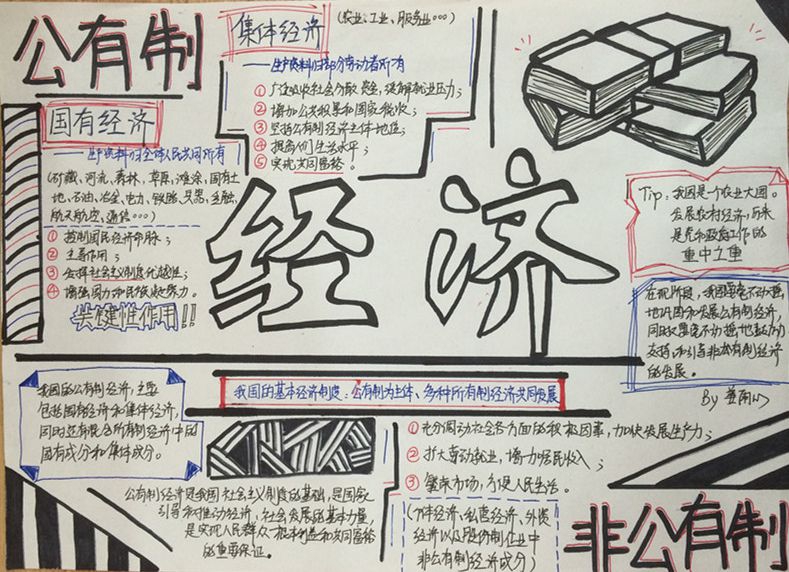 公有制
集体经济
(农业、工业、服务业…)
——生产资料归部分劳动者所有
① 广泛吸收社会分散资金,缓解就业压力;
② 增加公共积累和国家税收;
③ 坚持公有制经济主体地位;
④ 提高人们生活水平;
⑤ 实现共同富裕。
国有经济
——生产资料归全体人民共同所有
(矿藏、河流、森林、草原、滩涂、国有土
地、石油、冶金、电力、铁路、兵器、金融、
航天航空、通信…)
① 控制国民经济命脉;
② 主导作用;
③ 发挥社会主义制度优越性;
④ 增强国力和民族凝聚力。
关键性作用!!
经济
Tip:我国是一个农业大国。
发展农村经济,历来
是党和政府工作的
重中之重
在现阶段,我国要毫不动摇
地巩固和发展公有制经济,
同时又要毫不动摇地鼓励
支持和引导非公有制经济
的发展。
By
我国的公有制经济,主要
包括国有经济和集体经济,
同时还有混合所有制经济中的
国有成分和集体成分。
我国的基本经济制度:公有制为主体、多种所有制经济共同发展
公有制经济是我国社会主义制度的基础,是国家
引导和推动经济、社会发展的基本力量,
是实现人民群众根本利益和共同富裕
的重要保证。
① 充分调动社会各方面的积极因素,加快发展生产力;
② 扩大劳动就业,增加居民收入;
③ 繁荣市场,方便人民生活。
(个体经济、私营经济、外资
经济以及股份制企业中
非公有制经济成分)
非公有制